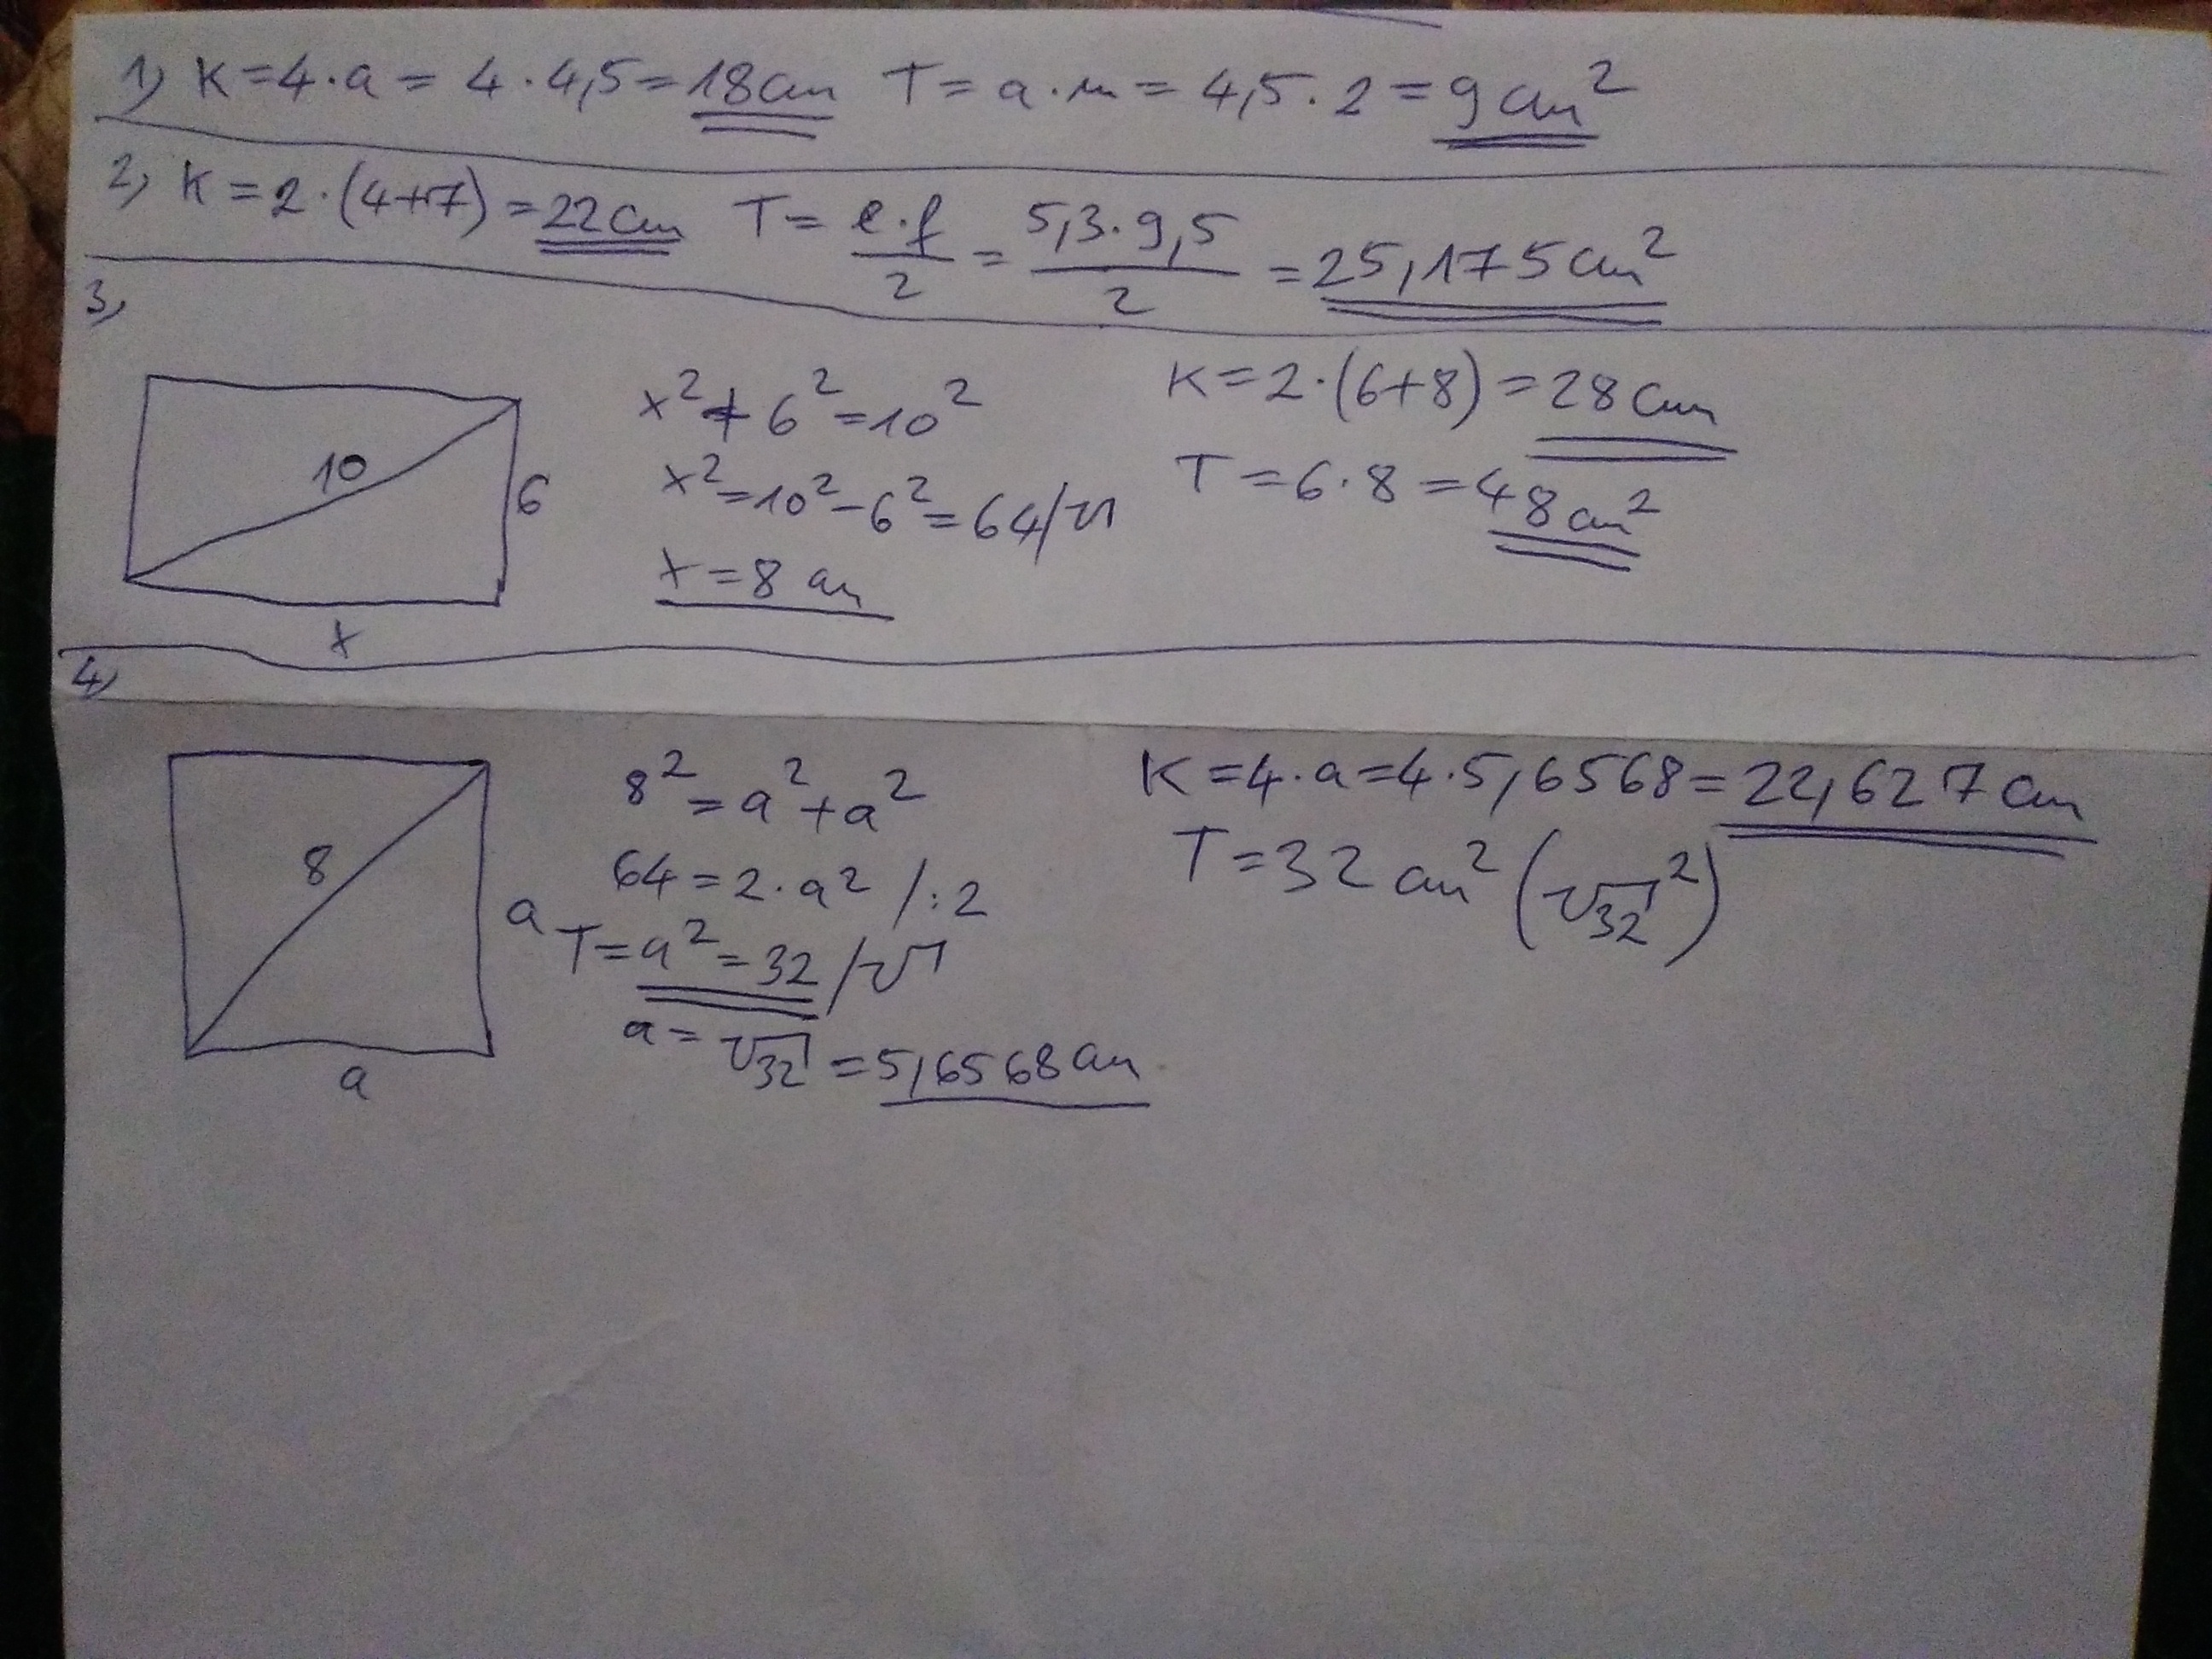 1) K=4·a= 4·4,5=18cm T=a·m=4,5·2=9cm²
2) K=2·(4+7)=22cm T=e·f/2=5,3·9,5/2=25,175cm²
3)
10
6
x
x²+6²=10²
x²=10²-6²=64/√
x=8 cm
K=2·(6+8)=28cm
T=6·8=48cm²
4)
8
a
a
8²=a²+a²
64=2·a² /:2
T=a²=32 /√
a=√32=5,6568cm
K=4·a=4·5,6568=22,627cm
T=32cm² (√32²)